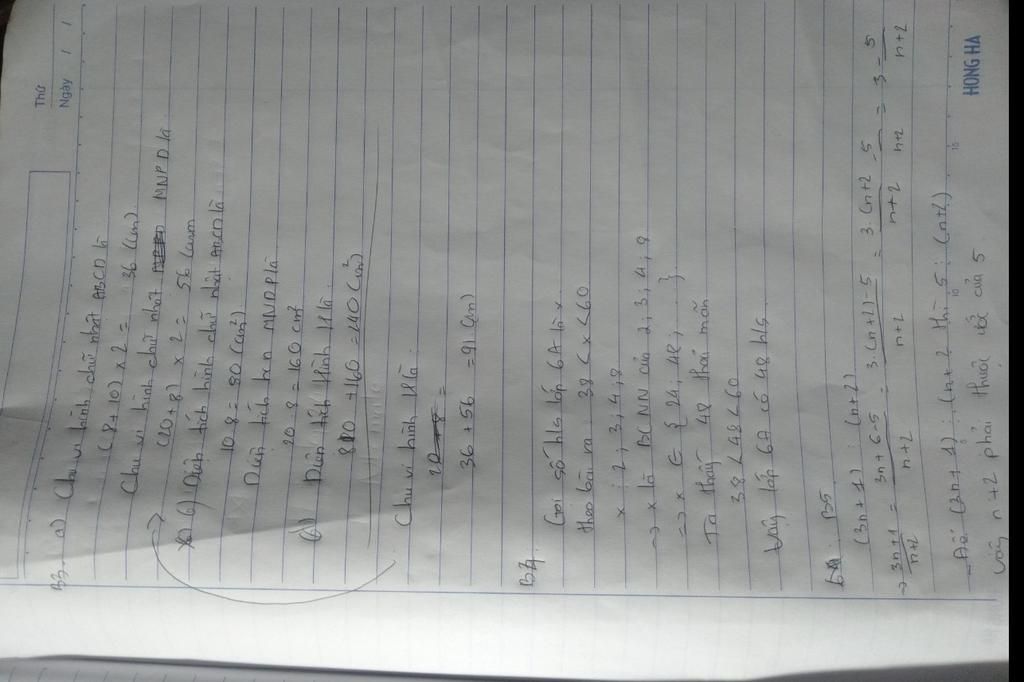 Thứ
Ngày / /
B3. a) Chu vi hình chữ nhật ABCD là
(8 + 10) × 2 = 36 (cm).
Chu vi hình chữ nhật MNPD là
(20 + 8) × 2 = 56 (cm)
b) Diện tích hình chữ nhật ABCD là
10 . 8 = 80 (cm²)
Diện tích hcn MNDP là
20 . 8 = 160 cm²
Diện tích Hình H là:
80 + 160 = 240 (cm²)
Chu vi hình H là
=
36 + 56 = 91 (cm)
B4.
Gọi số h/s lớp 6A là x
theo bài ra 38 < x < 60
x ⋮ 2, 3, 4, 8
→ x là BCNN của 2, 3, 4, 8
=> x ∈ { 24; 48; }.
Ta thấy 48 thoả mãn
38 < 48 < 60
Vậy lớp 6A có 48 h/s.
B5
(3n + 1) : (n + 2)
→ 3n+1/n+2 = 3n+6-5/n+2 = 3.(n+2)-5/n+2 = 3(n+2/n+2 -5/n+2 = 3 - 5/n+2
- Để (3n + 1) : (n + 2 thì 5 : (n+2)
Vậy n+2 phải thuộc của 5
HONG HA